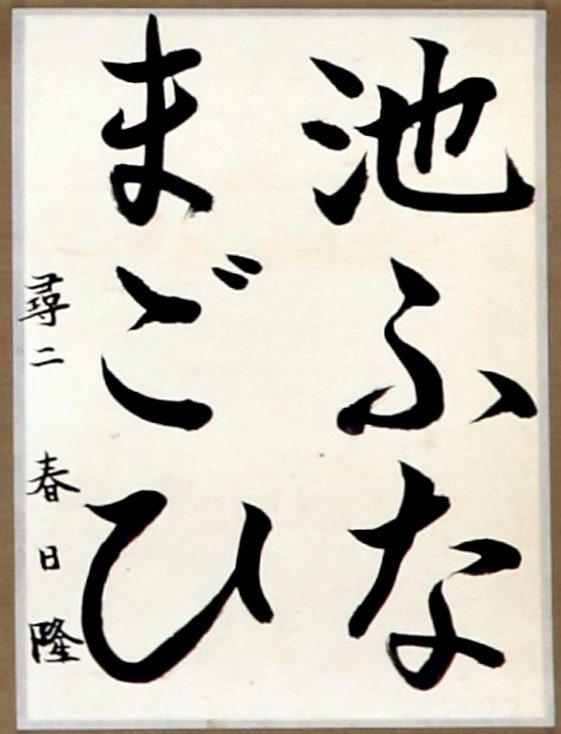 池ふな
まごひ
尋二 春日隆